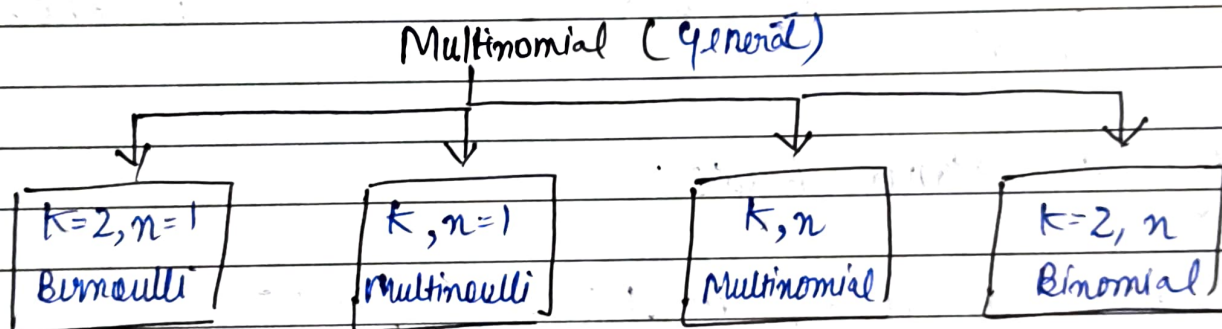 Multinomial (General)
K=2, n=1
Bernoulli
K, n=1
Multinoulli
K, n
Multinomial
K=2, n
Binomial